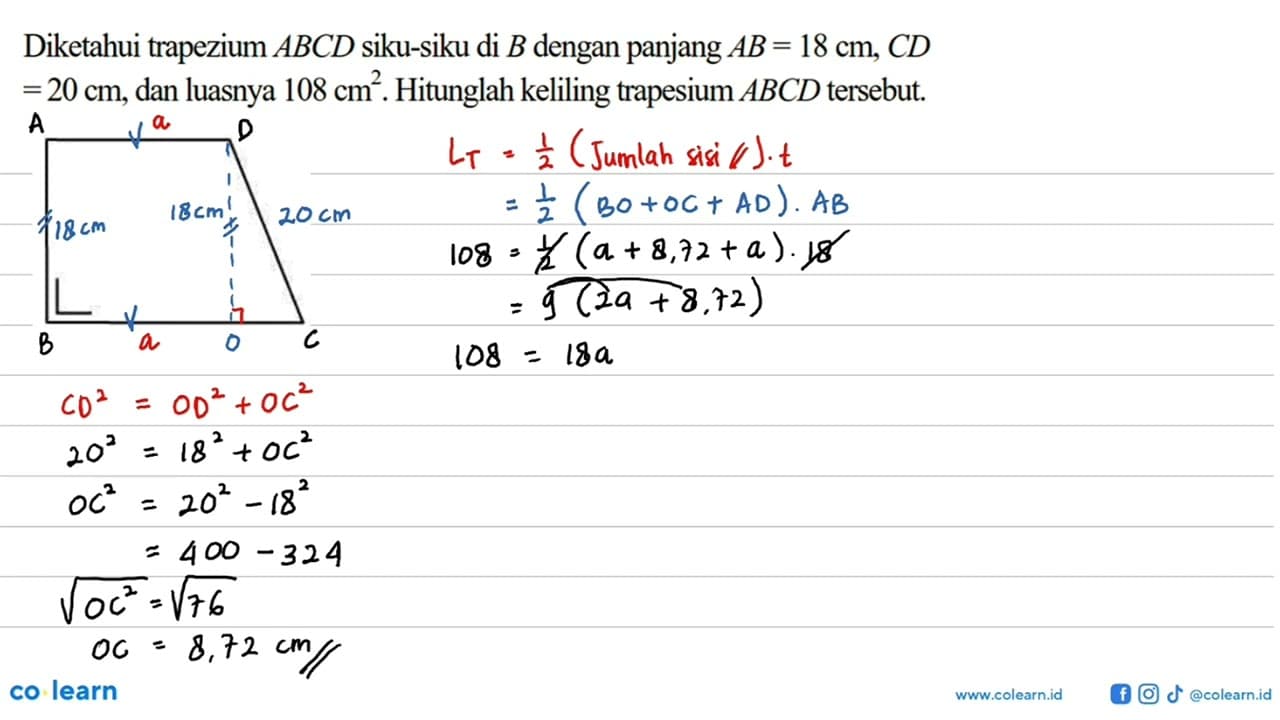 Diketahui trapezium ABCD siku-siku di B dengan panjang AB = 18 cm, CD
= 20 cm, dan luasnya 108 cm². Hitunglah keliling trapesium ABCD tersebut.
A a D
18 cm 18 cm 20 cm
B a O C
L_T = 1/2 (Jumlah sisi //). t
= 1/2 (BO + OC + AD). AB
108 = 1/2 (a + 8,72 + a). 18
= 9 (2a + 8,72)
108 = 18a
CD² = OD² + OC²
20² = 18² + OC²
OC² = 20² - 18²
= 400 - 324
√OC² = √76
OC = 8,72 cm //
co learn
www.colearn.id
@colearn.id